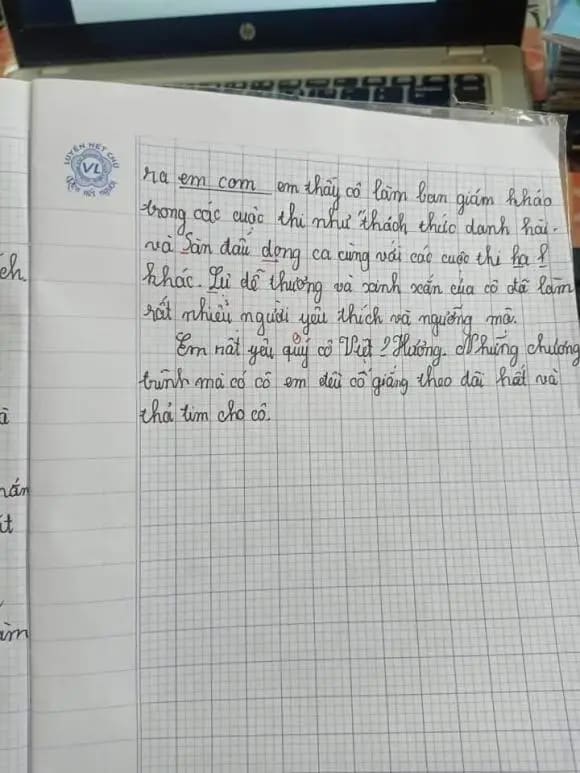 LUYỆN NÉT CHỮ
VL
RÈN NẾT NGƯỜI
hp
ra em com em thấy cô làm ban giám khảo
trong các cuộc thi như "thách thức danh hài.
và Sàn đấu dọng ca cùng với các cuộc thi ha l
khác. Lự dễ thương và xinh xắn của cô đã làm
rất nhiều người yêu thích và ngưỡng mộ.
Em rất yêu quý cô Việt ? Hương. Những chương
trình mà có cô em đều cố giắng theo dõi hất và
thả tim cho cô.
ch
à
nắn
it
àm